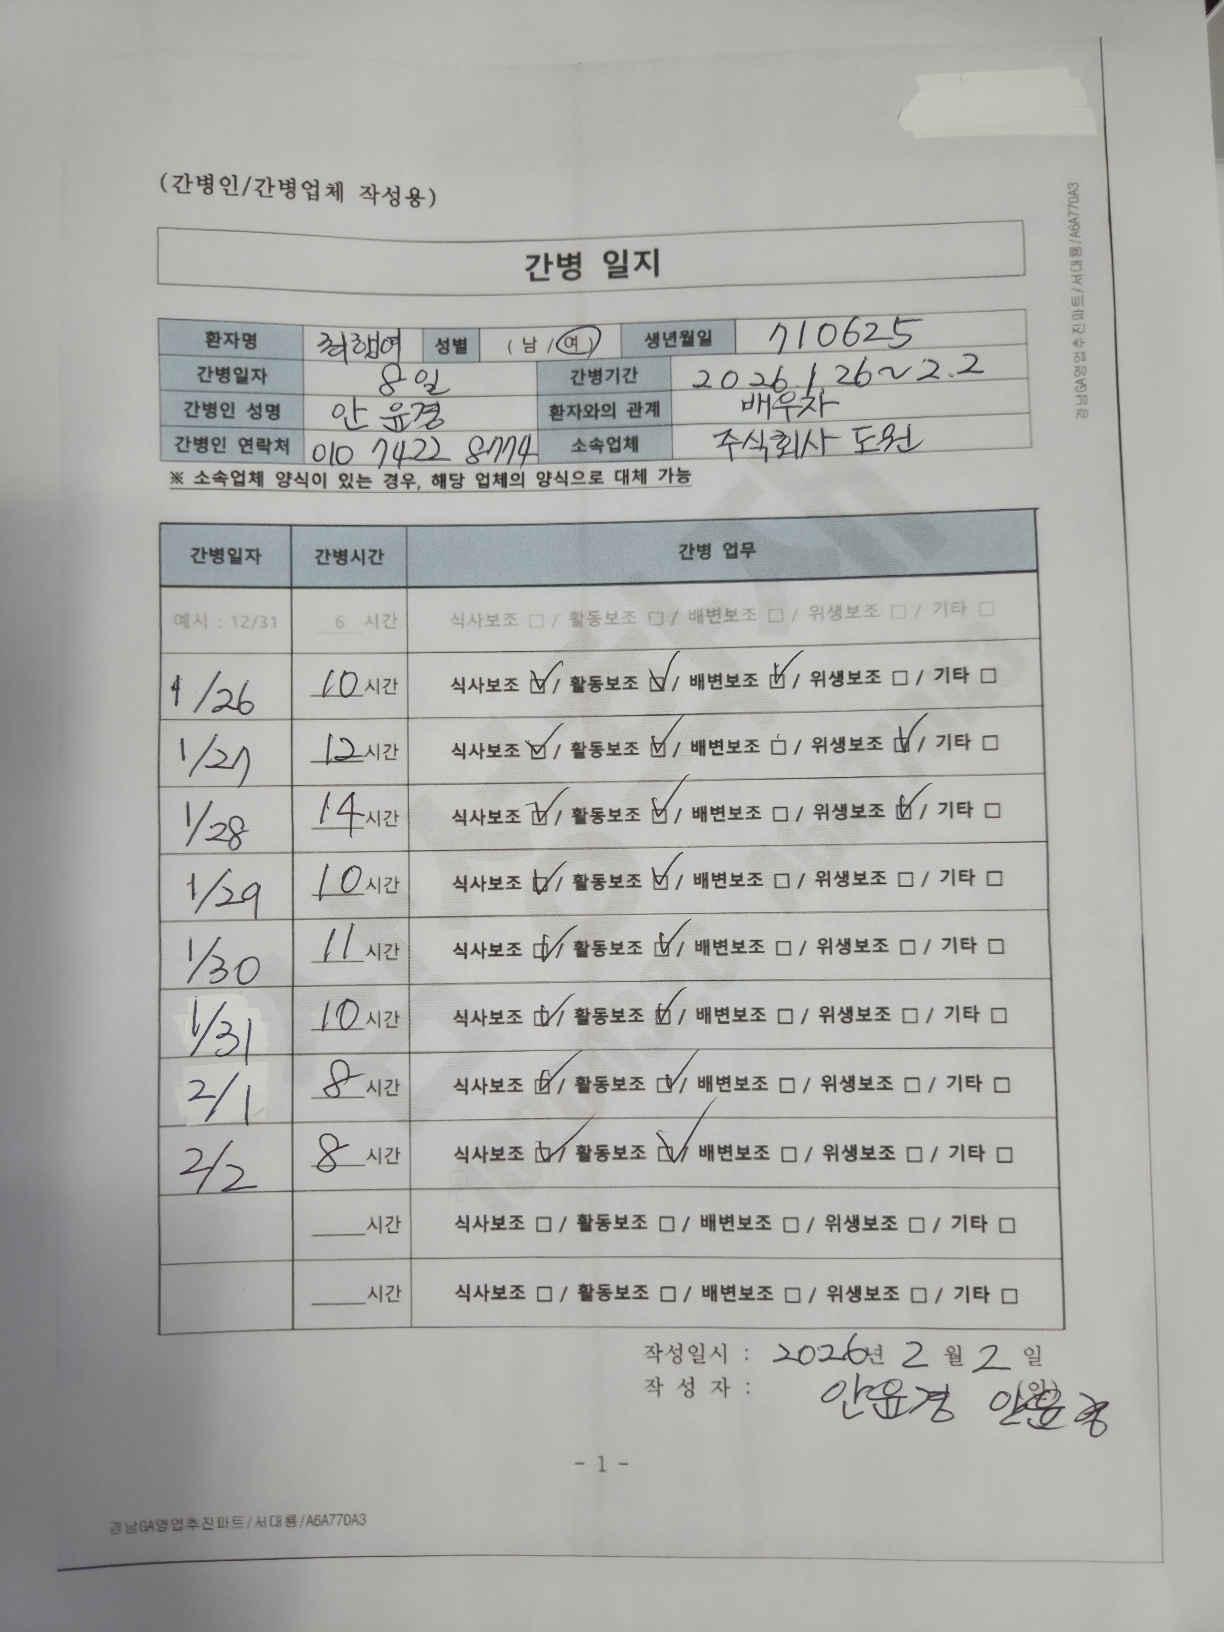 (간병인/간병업체 작성용)
간병 일지
환자명 최행여 성별 (남/여) 생년월일 710625
간병일자 8일 간병기간 2026.1.26~2.2
간병인 성명 안윤경 환자와의 관계 배우자
간병인 연락처 010 7422 8774 소속업체 주식회사 도원
※ 소속업체 양식이 있는 경우, 해당 업체의 양식으로 대체 가능
간병일자 간병시간 간병 업무
예시 : 12/31 6 시간 식사보조 □ / 활동보조 □ / 배변보조 □ / 위생보조 □ / 기타 □
1/26 10 시간 식사보조 ☑ / 활동보조 ☑ / 배변보조 ☑ / 위생보조 □ / 기타 □
1/27 12 시간 식사보조 ☑ / 활동보조 ☑ / 배변보조 □ / 위생보조 ☑ / 기타 □
1/28 14 시간 식사보조 ☑ / 활동보조 ☑ / 배변보조 □ / 위생보조 ☑ / 기타 □
1/29 10 시간 식사보조 ☑ / 활동보조 ☑ / 배변보조 □ / 위생보조 □ / 기타 □
1/30 11 시간 식사보조 ☑ / 활동보조 ☑ / 배변보조 □ / 위생보조 □ / 기타 □
1/31 10 시간 식사보조 ☑ / 활동보조 ☑ / 배변보조 □ / 위생보조 □ / 기타 □
2/1 8 시간 식사보조 ☑ / 활동보조 ☑ / 배변보조 □ / 위생보조 □ / 기타 □
2/2 8 시간 식사보조 ☑ / 활동보조 ☑ / 배변보조 □ / 위생보조 □ / 기타 □
시간 식사보조 □ / 활동보조 □ / 배변보조 □ / 위생보조 □ / 기타 □
시간 식사보조 □ / 활동보조 □ / 배변보조 □ / 위생보조 □ / 기타 □
작성일시 : 2026년 2월 2일
작 성 자 : 안윤경 (인) 안윤경
- 1 -
경남GA영업추진파트/서대룡/A6A770A3
경남GA영업추진파트/서대룡/A6A770A3